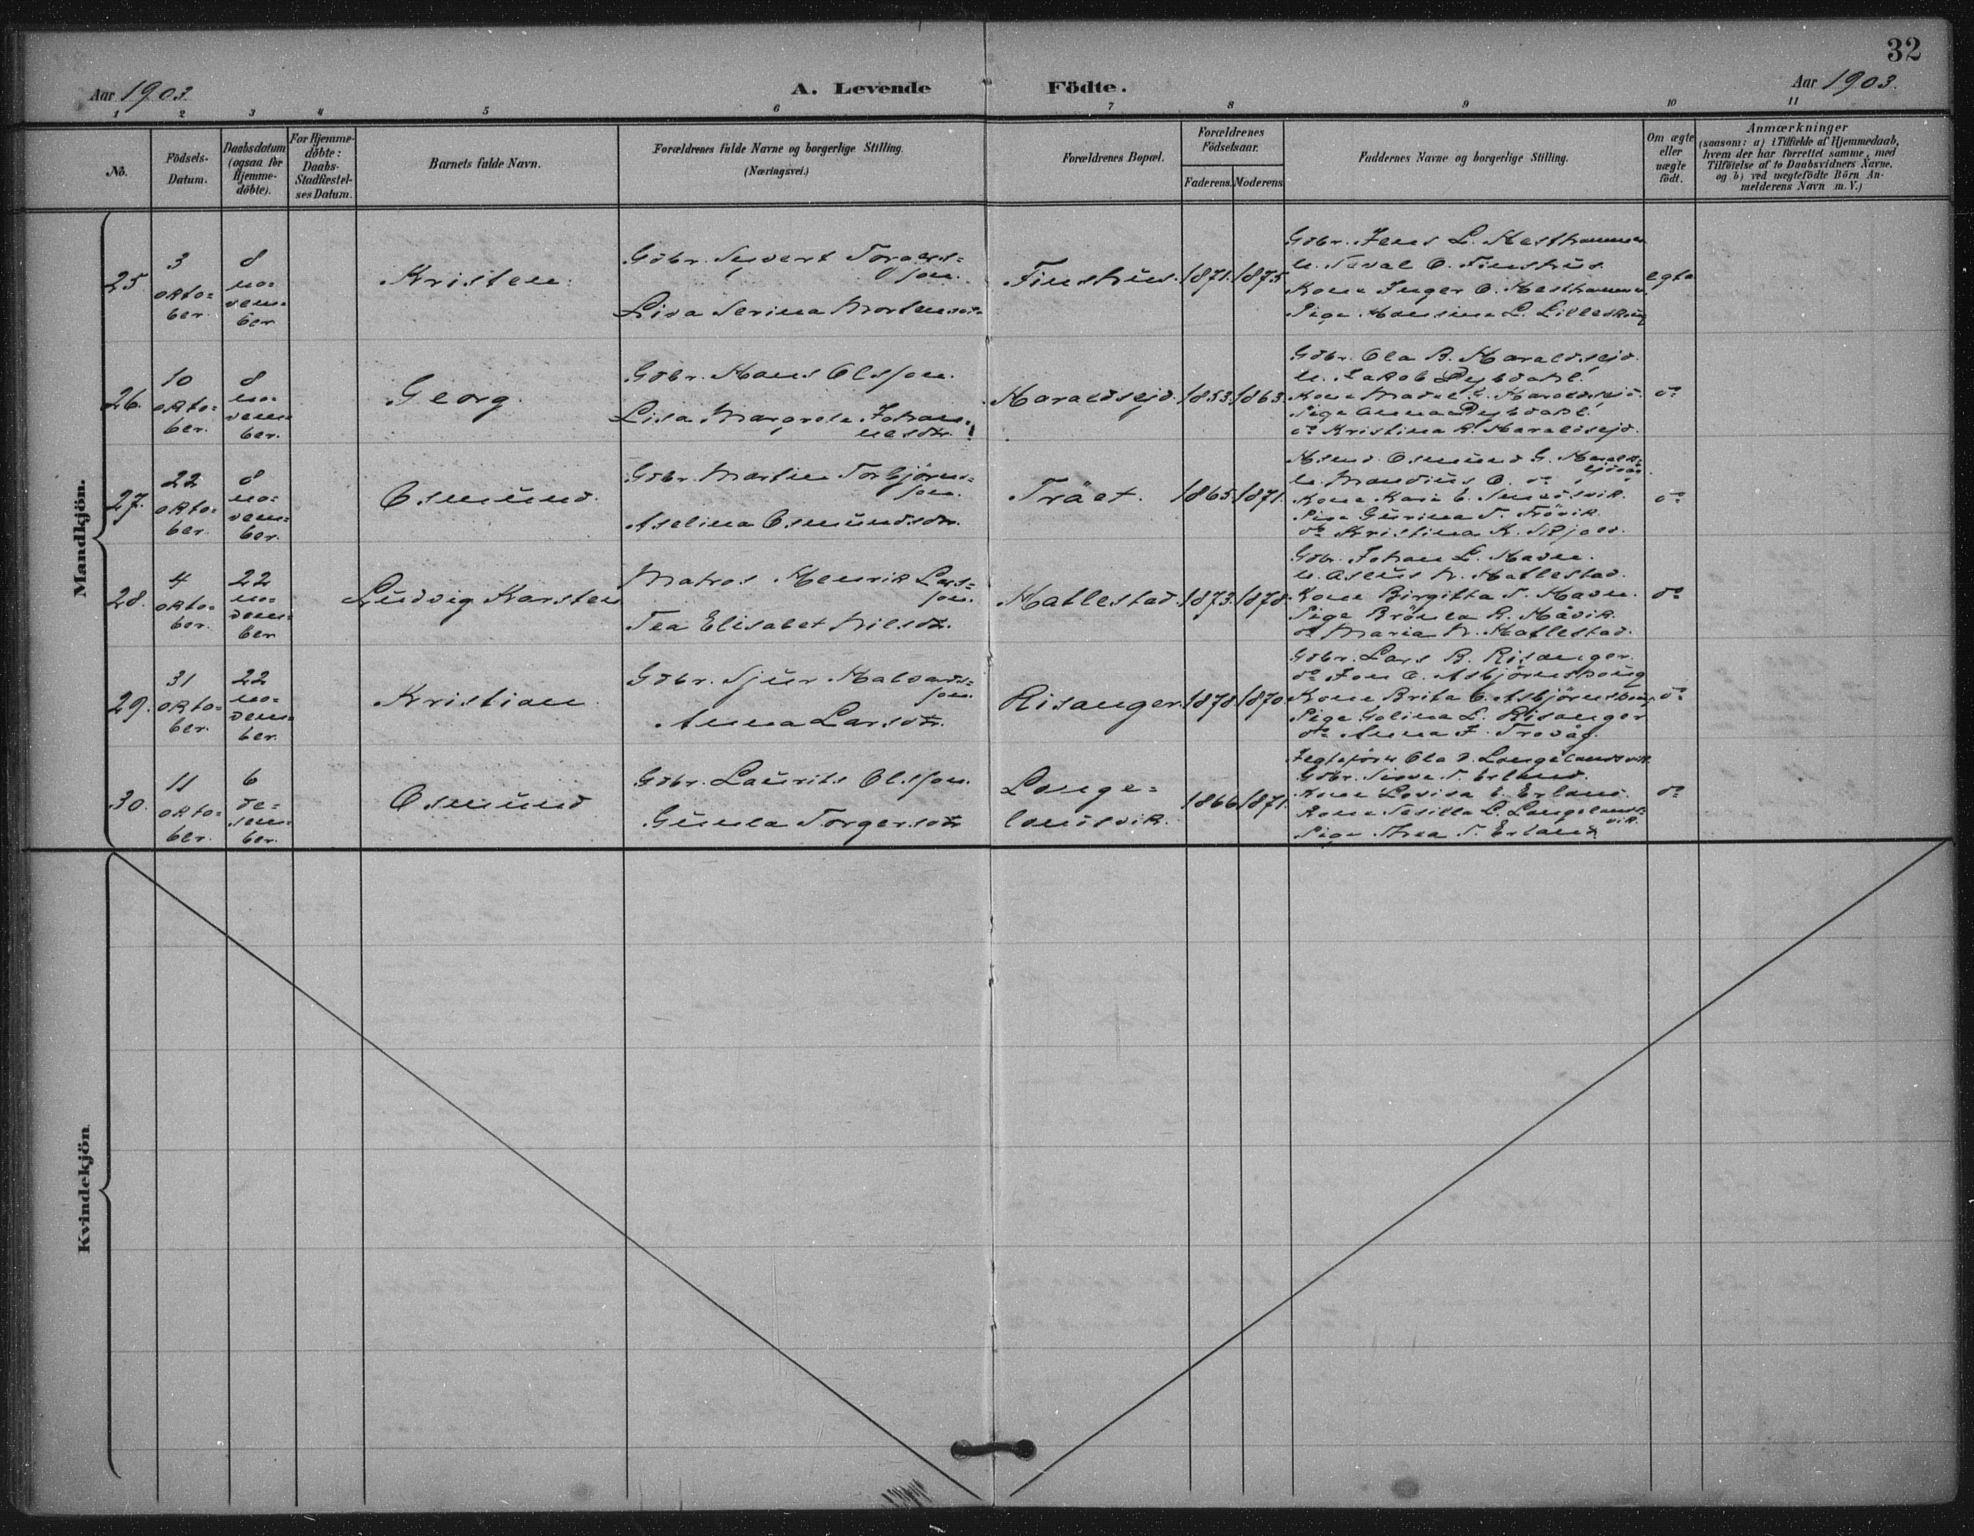 32
Aar 1903.
A. Levende Födte.
Aar 1903.
1 2 3 4 5 6 7 8 9 10 11
No.
Födsels-
Datum.
Daabsdatum
(ogsaa for
Hjemme-
döbte).
For Hjemme-
döbte:
Daabs-
Stadfæstel-
ses Datum.
Barnets fulde Navn.
Forældrenes fulde Navne og borgerlige Stilling.
(Næringsvei.)
Forældrenes Bopæl.
Forældrenes
Födselsaar.
Faderens. Moderens.
Faddernes Navne og borgerlige Stilling.
Om ægte
eller
uægte
födt.
Anmærkninger
(saasom: a) i Tilfælde af Hjemmedaab,
hvem der har forrettet samme, med
Tilföielse af to Daabsvidners Navne,
og b) ved uægtefödte Börn An-
melderens Navn m. V.)
Mandkjön.
25.
3
okto-
ber.
8
no-
vem-
ber
Kristen.
Gdbr. Sjovert
son.
Lisa Serina
Finshus.
1871. 1875
Gdbr. Jens L. Hesthammer
U. O. Finshus.
Kone Inger O. Hesthammer
Pige L.
egte
26.
10
okto-
ber.
8
no-
vem-
ber.
Georg.
Gdbr. Hans Olsson.
Lisa Margrete Johan-
nesdtr.
Haraldseid.
1853. 1863.
Gdbr. Ola B. Haraldseid.
U. Jakob Dybdahl.
Kone
Pige Anna Dybdahl.
do Kristina R. Haraldseid.
do
27.
22
okto-
ber.
8
no-
vem-
ber.
Osmund.
Gdbr. Martin Torbjörns-
son.
Aselina Osmundsdtr.
Trået.
1865. 1871.
Osmund G.
U. O. do
Kone Kari
Pige Gurina
do Kristina K.
do
28.
4
okto-
ber.
22
no-
vem-
ber
Ludvig Karsten
Matros Henrik Lars-
son.
Tea Elisabet Nilsdtr.
Hatlestad.
1873. 1878.
Gdbr. Johan L. Havn.
U. N. Hatlestad.
Kone Birgitta T. Havn.
Pige R. Håvik.
do Maria N. Hatlestad.
do
29.
31
okto-
ber.
22
no-
vem-
ber.
Kristian
Gdbr. Sjur Halvards-
son.
Anna Larsdtr.
Risanger.
1878. 1870.
Gdbr. Lars B. Risanger.
do Jon O. Asbjörnshoug
Kone Brita O. Asbjörnshoug
Pige Golina L. Risanger
do Anna J.
do
30.
11
okto-
ber.
6
de-
sem-
ber.
Osmund
Gdbr. Laurits Olsson.
Gunla Torgersdtr
Lange-
landsvik.
1866. 1871.
Ola D. Langelandsvik.
Gdbr. T. Erland.
Kone Lovisa E. Erland.
Kone L. Langelands-
vik.
Pige T. Erland
do
Kvindekjön